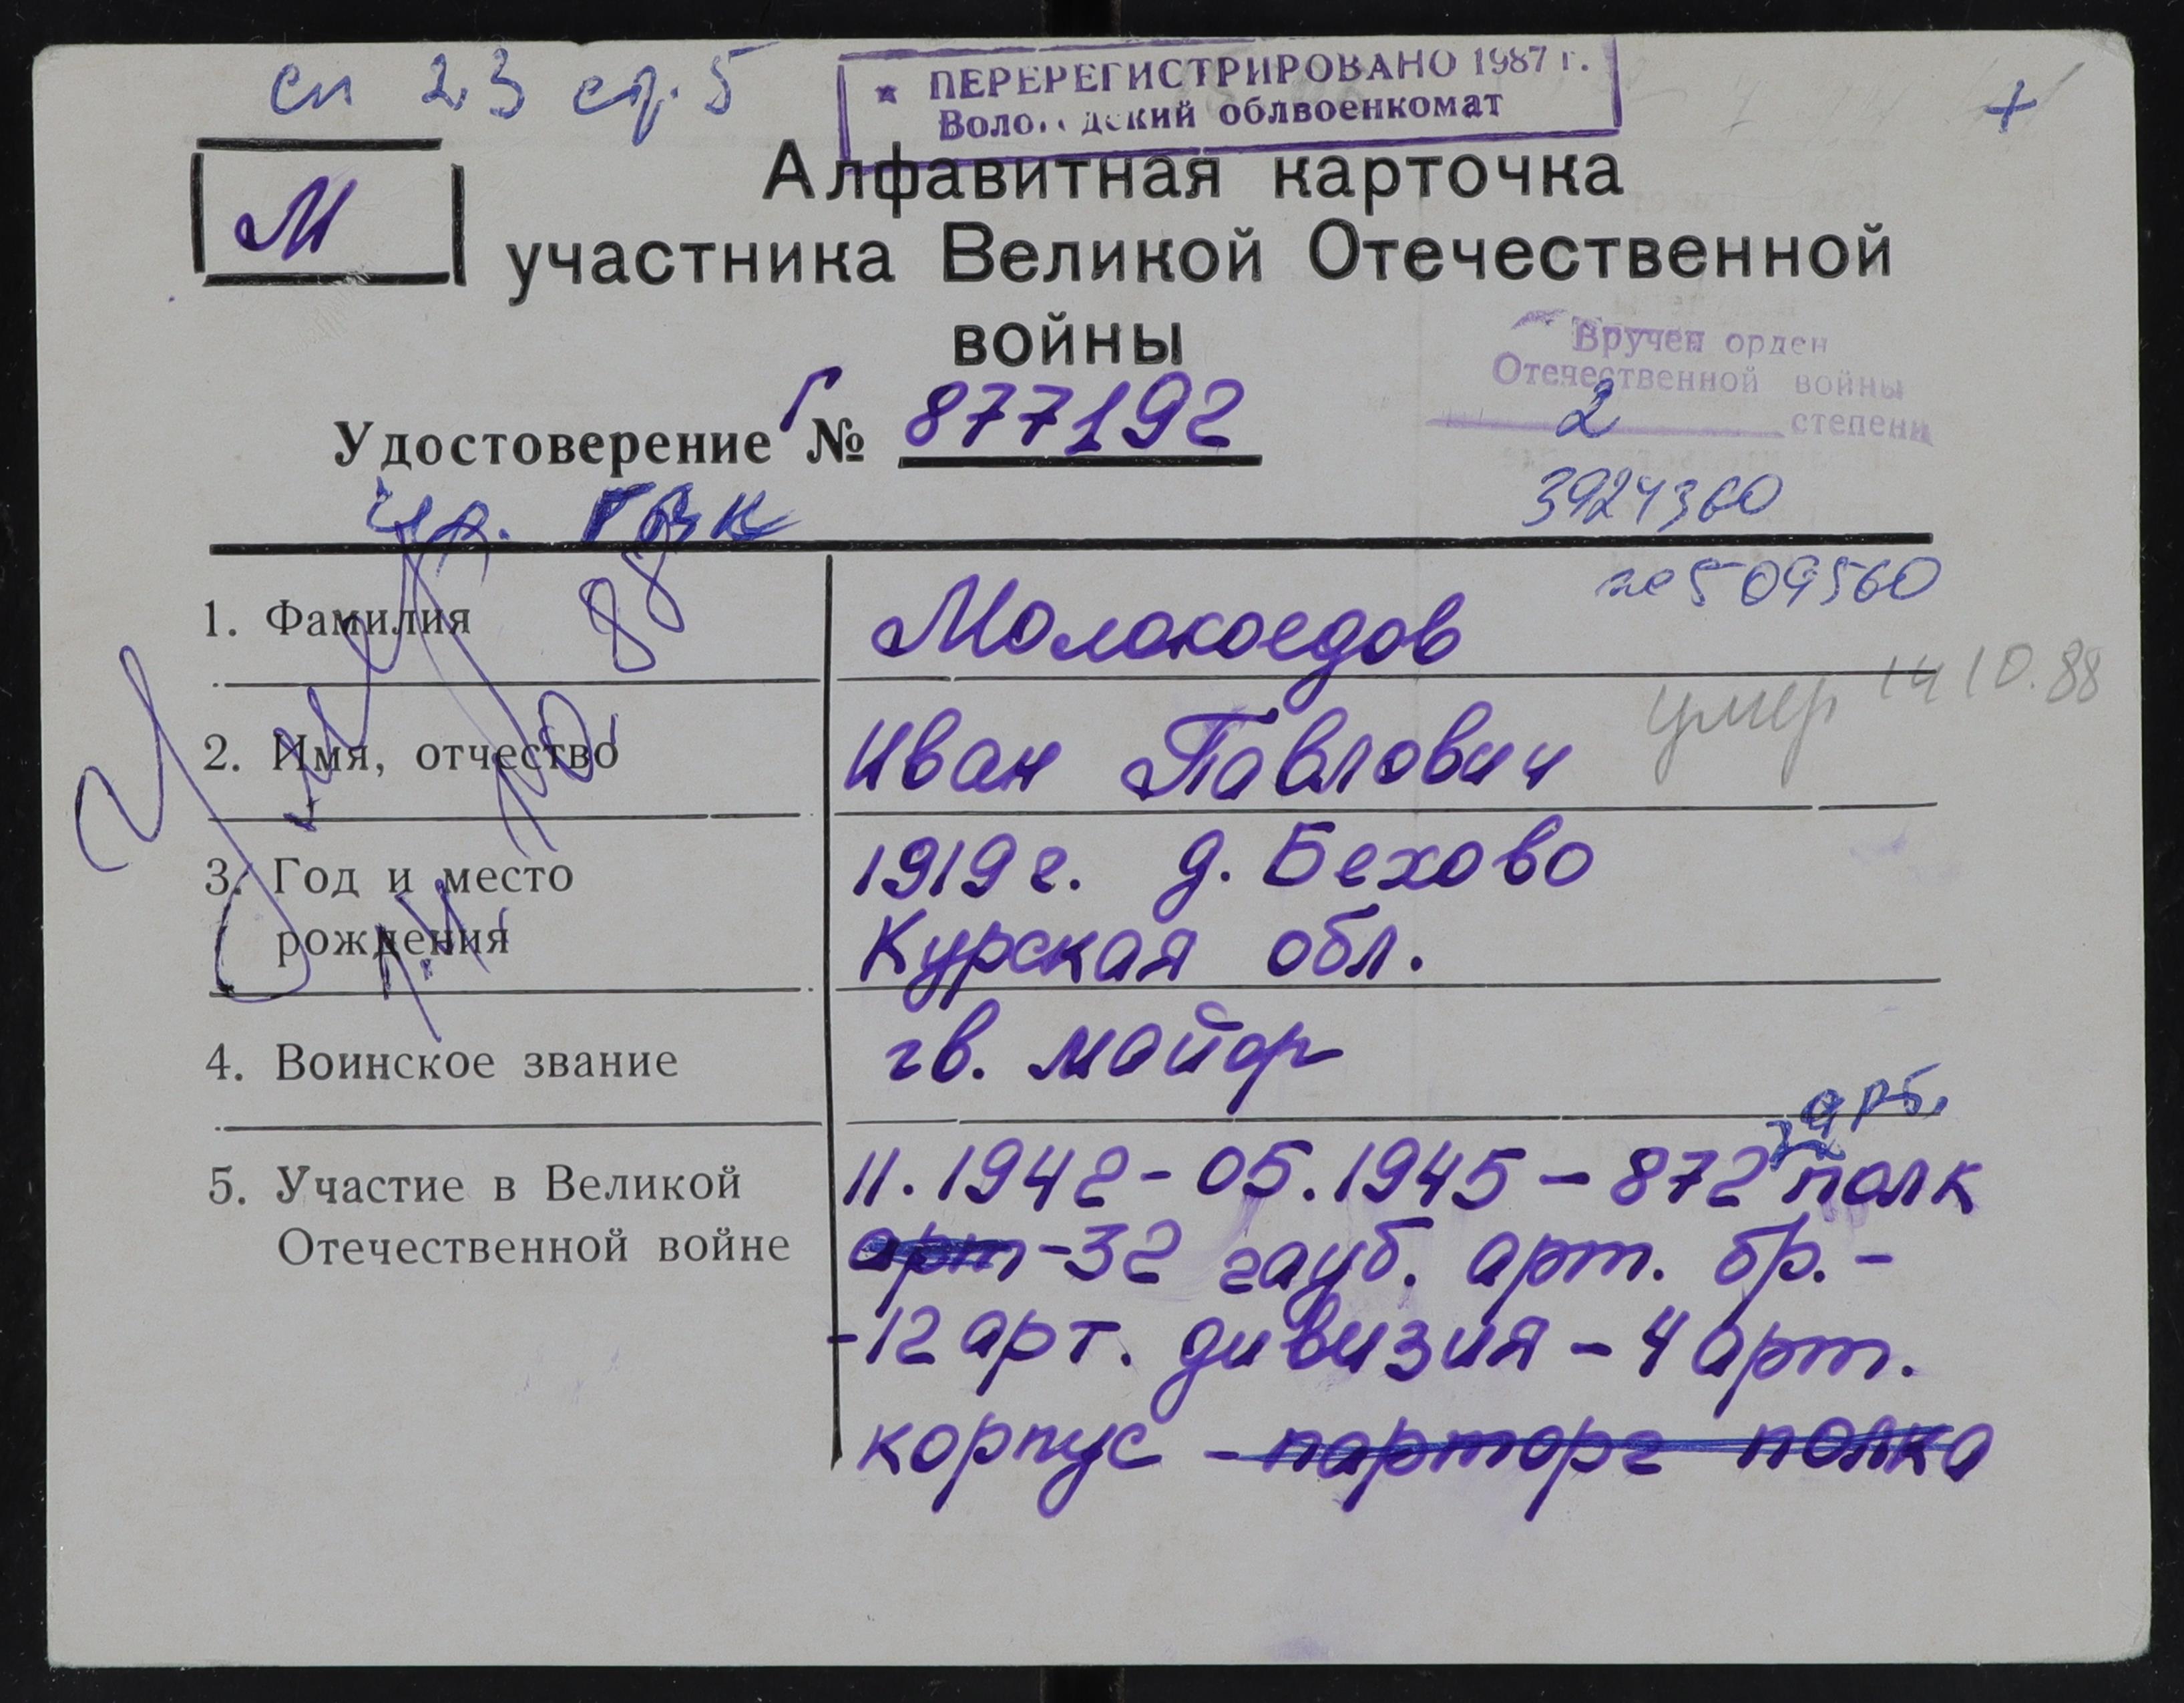 сп 23 ср. 5
ПЕРЕРЕГИСТРИРОВАНО 1987 г.
облвоенкомат
+
М
Алфавитная карточка
участника Великой Отечественной
войны
Вручен орден
Отечественной войны
2 степени
Удостоверение Г № 877192
3924360
ГВК
509560
1. Фамилия Молокоедов
умер 14 10.88
2. Имя, отчество Иван Павлович
Умер 14.10.88
3. Год и место 1919 г. д. Бехово
рождения Курская обл.
4. Воинское звание гв. майор
5. Участие в Великой 11.1942 - 05.1945 - 872 полк
Отечественной войне арт - 32 гауб. арт. бр. -
- 12 арт. дивизия - 4 арт.
корпус - парторг полка